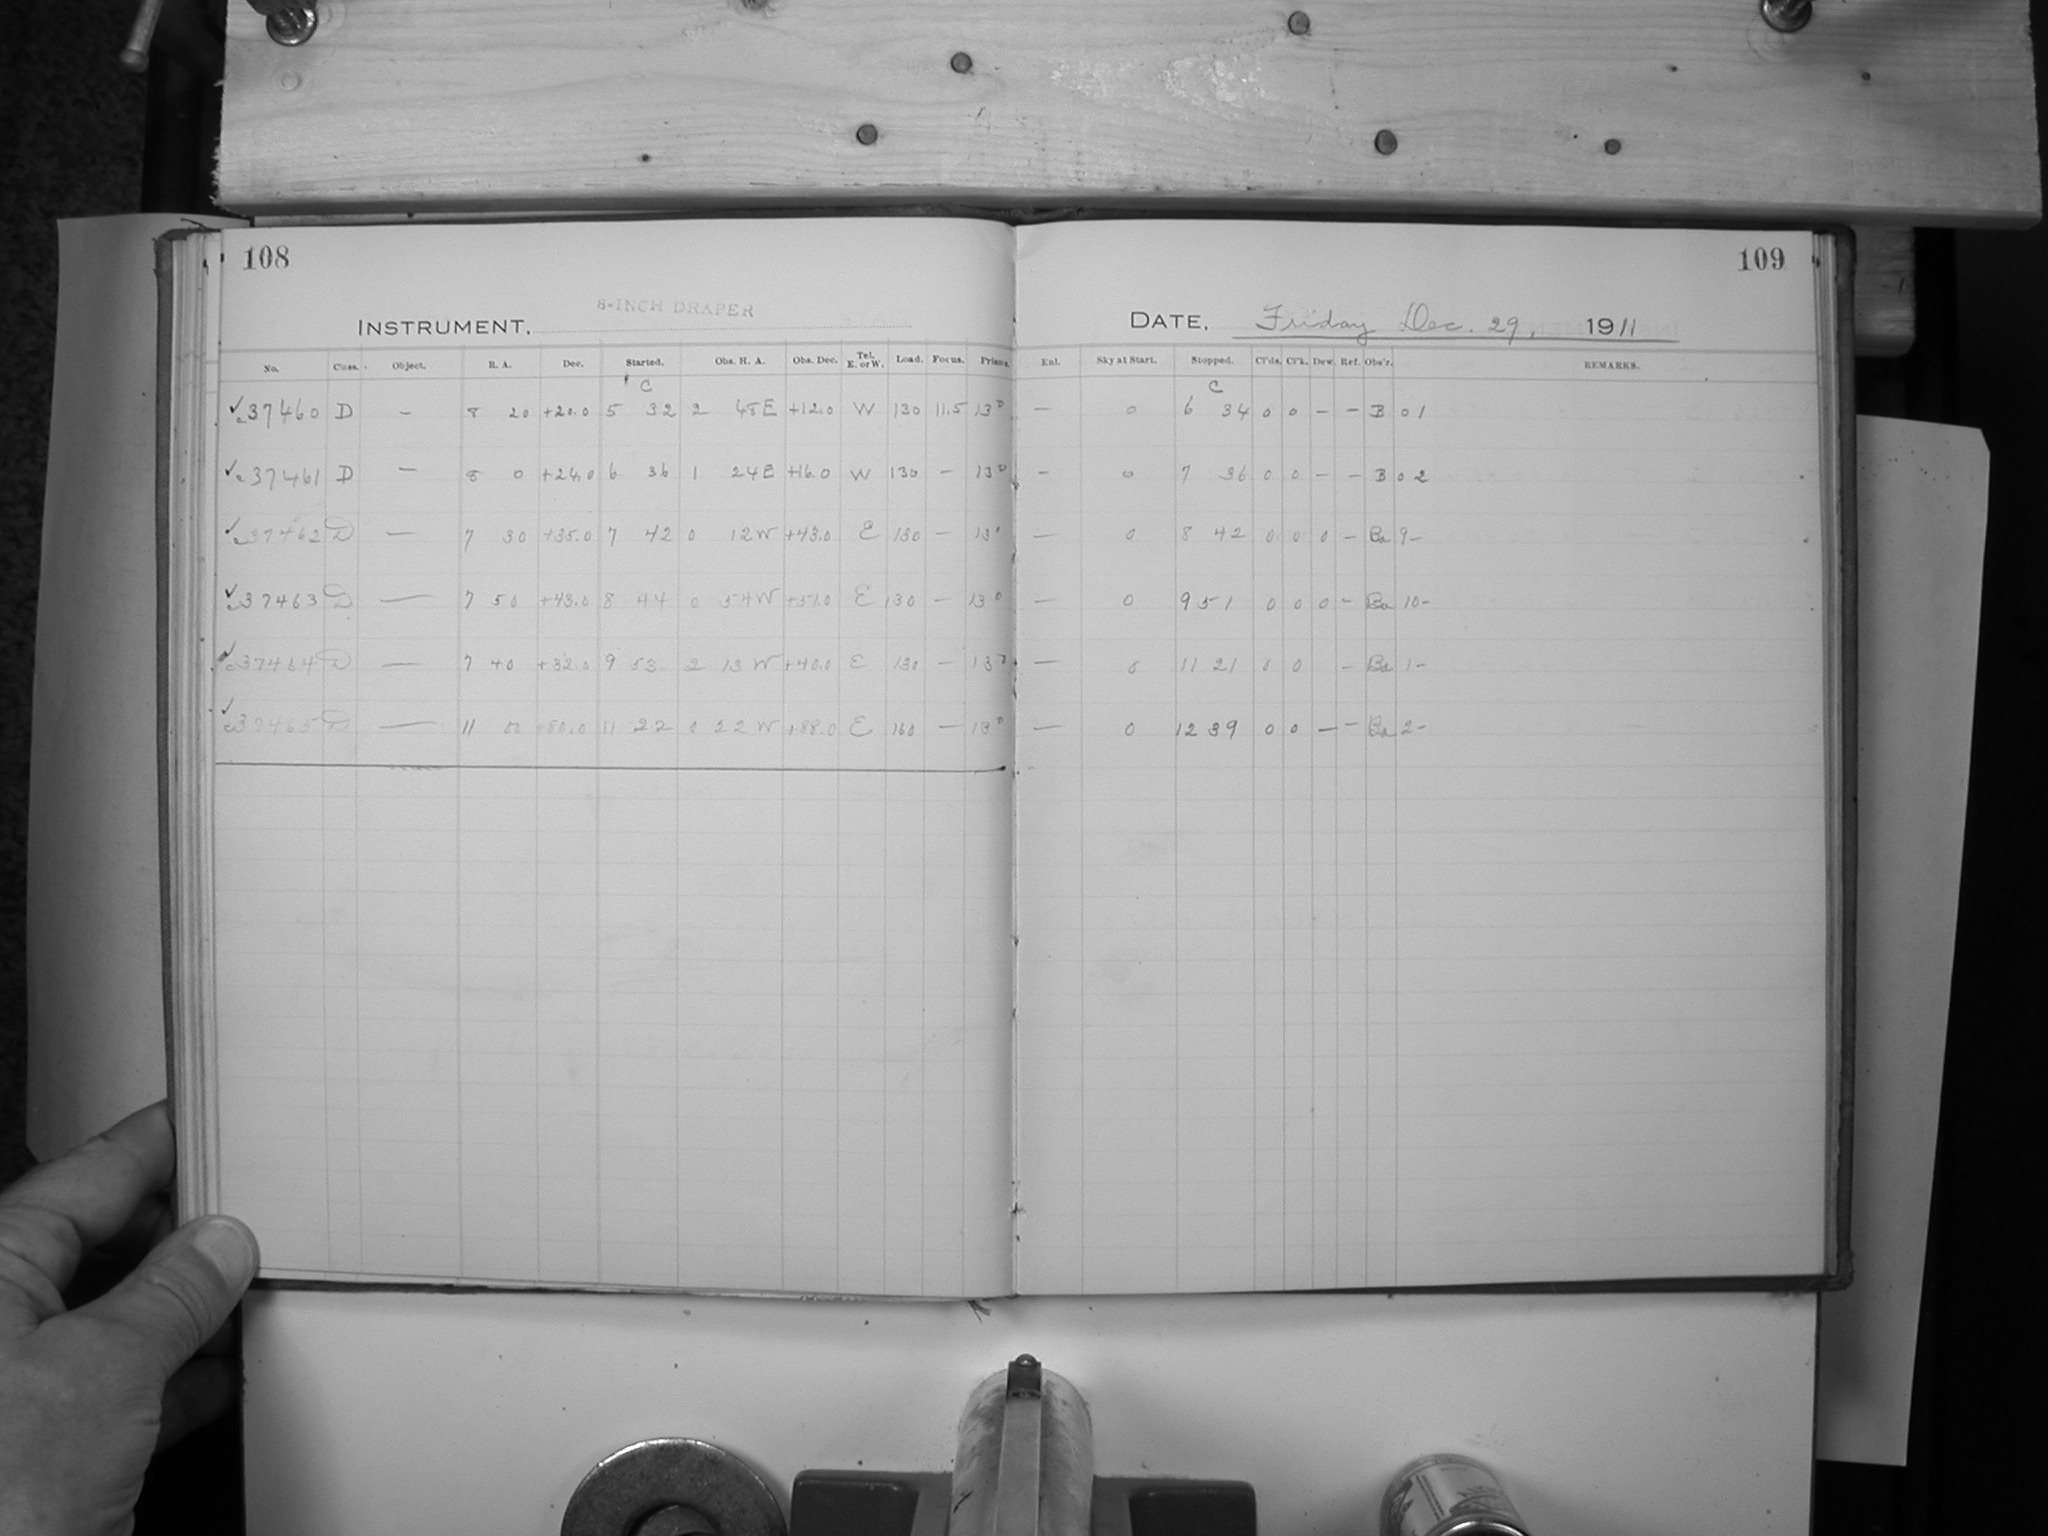 108
109
8-INCH DRAPER
INSTRUMENT.
DATE, Friday Dec. 29, 1911
No. Class. Object. R. A. Dec. Started. Obs. H. A. Obs. Dec. Tel. E. or W. Load. Focus. Prism. Enl. Sky at Start. Stopped. Cl'ds. Cl'k. Dew. Ref. Obs'r. REMARKS.
C C
✓c37460 D — 8 20 +20.0 5 32 2 48E +12.0 W 130 11.5 13° — 0 6 34 0 0 — — B 01
✓c37461 D — 8 0 +24.0 6 36 1 24E +16.0 W 130 — 13° — 0 7 36 0 0 — — B 02
✓c37462 D — 7 30 +35.0 7 42 0 12W +43.0 E 130 — 13' — 0 8 42 0 0 0 — Ba 9-
✓c37463 D — 7 50 +43.0 8 44 0 54W E 130 — 13° — 0 9 51 0 0 0 — Ba 10-
✓c37464 D — 7 40 +32.0 9 53 2 13W +40.0 E 130 — 13° — 0 11 21 0 0 — Ba 1-
✓c37465 D — 11 00 +80.0 11 22 0 22W +88.0 E 160 — 13° — 0 12 39 0 0 — — Ba 2-